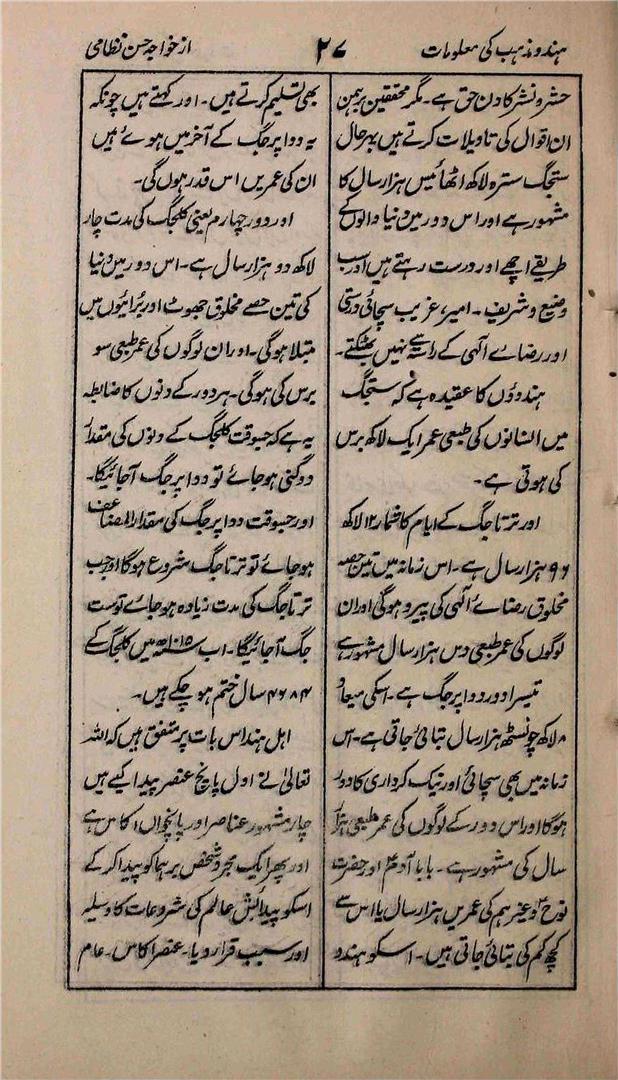 ہندو مذہب کی معلومات
۲۷
از خواجہ حسن نظامی
حشر و نشر کا دن حق ہے۔ مگر محققین برہمن
ان اقوال کی تاویلات کرتے ہیں بہرحال
ستجگ سترہ لاکھ اٹھائیس ہزار سال کا
مشہور ہے اور اس دور میں دنیا والوں کے
طریقے اچھے اور درست رہتے ہیں اور سب
وضیع و شریف۔ امیر، غریب سچائی درستی
اور رضائے الٰہی کے راستے سے نہیں بھٹکتے۔
ہندوؤں کا عقیدہ ہے کہ ستجگ
میں انسانوں کی طبعی عمر ایک لاکھ برس
کی ہوتی ہے۔
اور ترتا جگ کے ایام کا شمار ۱۲ لاکھ
۹۶ ہزار سال ہے۔ اس زمانہ میں تین حصہ
مخلوق رضائے الٰہی کی پیرو ہوگی اور ان
لوگوں کی عمر طبعی دس ہزار سال مشہور ہے
تیسرا دور دواپر جگ ہے۔ اسکی میعاد
۸ لاکھ چونسٹھ ہزار سال بتائی جاتی ہے۔ اس
زمانہ میں بھی سچائی اور نیک کرداری کا دور
ہوگا اور اس دور کے لوگوں کی عمر طبعی ہزار
سال کی مشہور ہے۔ بابا آدمؑ اور حضرت
نوحؑ وغیرہم کی عمریں ہزار سال یا اس سے
کچھ کم کی بتائی جاتی ہیں۔ اسکو ہندو
بھی تسلیم کرتے ہیں۔ اور کہتے ہیں چونکہ
یہ دواپر جگ کے آخر میں ہوئے ہیں
ان کی عمریں اس قدر ہوں گی۔
اور دور چہارم یعنی کلجگ کی مدت چار
لاکھ دو ہزار سال ہے۔ اس دور میں دنیا
کی تین حصے مخلوق جھوٹ اور برائیوں میں
مبتلا ہوگی۔ اور ان لوگوں کی عمر طبعی سو
برس کی ہوگی۔ ہر دور کے دنوں کا ضابطہ
یہ ہے کہ جسوقت کلجگ کے دنوں کی مقدار
دوگنی ہوجائے تو دواپر جگ آجائیگا۔
اور جسوقت دواپر جگ کی مقدار المضاعف
ہوجائے تو ترتا جگ شروع ہوگا اور جب
ترتا جگ کی مدت زیادہ ہوجائے تو ست
جگ آجائیگا۔ اب سنہ ۱۰۱۵ھ میں کلجگ کے
۴۶۸۴ سال ختم ہوچکے ہیں۔
اہل ہند اس بات پر متفق ہیں کہ اللہ
تعالیٰ نے اول پانچ عنصر پیدا کیے ہیں
چار مشہور عناصر اور پانچواں اکاس ہے
اور پھر ایک مجرد شخص برہما کو پیدا کرکے
اسکو پیدائش عالم کی شروعات کا وسیلہ
اور سبب قرار دیا۔ عنصر اکاس۔ عام